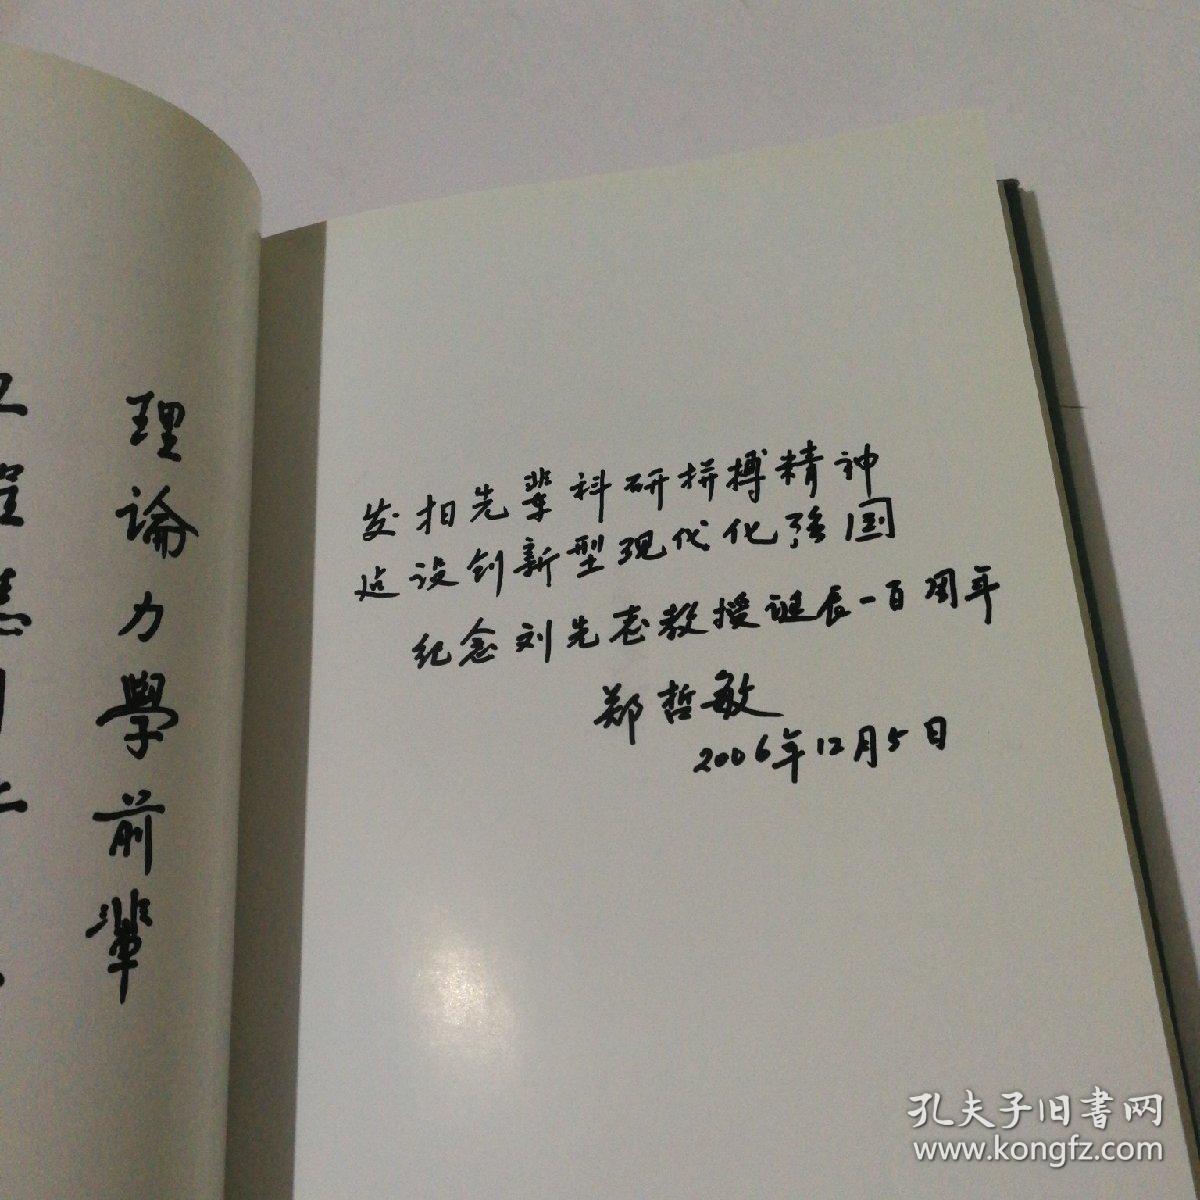 理論力學前輩
发扬先辈科研拼搏精神
建设创新型现代化强国
纪念刘先志教授诞辰一百周年
郑哲敏
2006年12月5日
孔夫子旧書网
www.kongfz.com